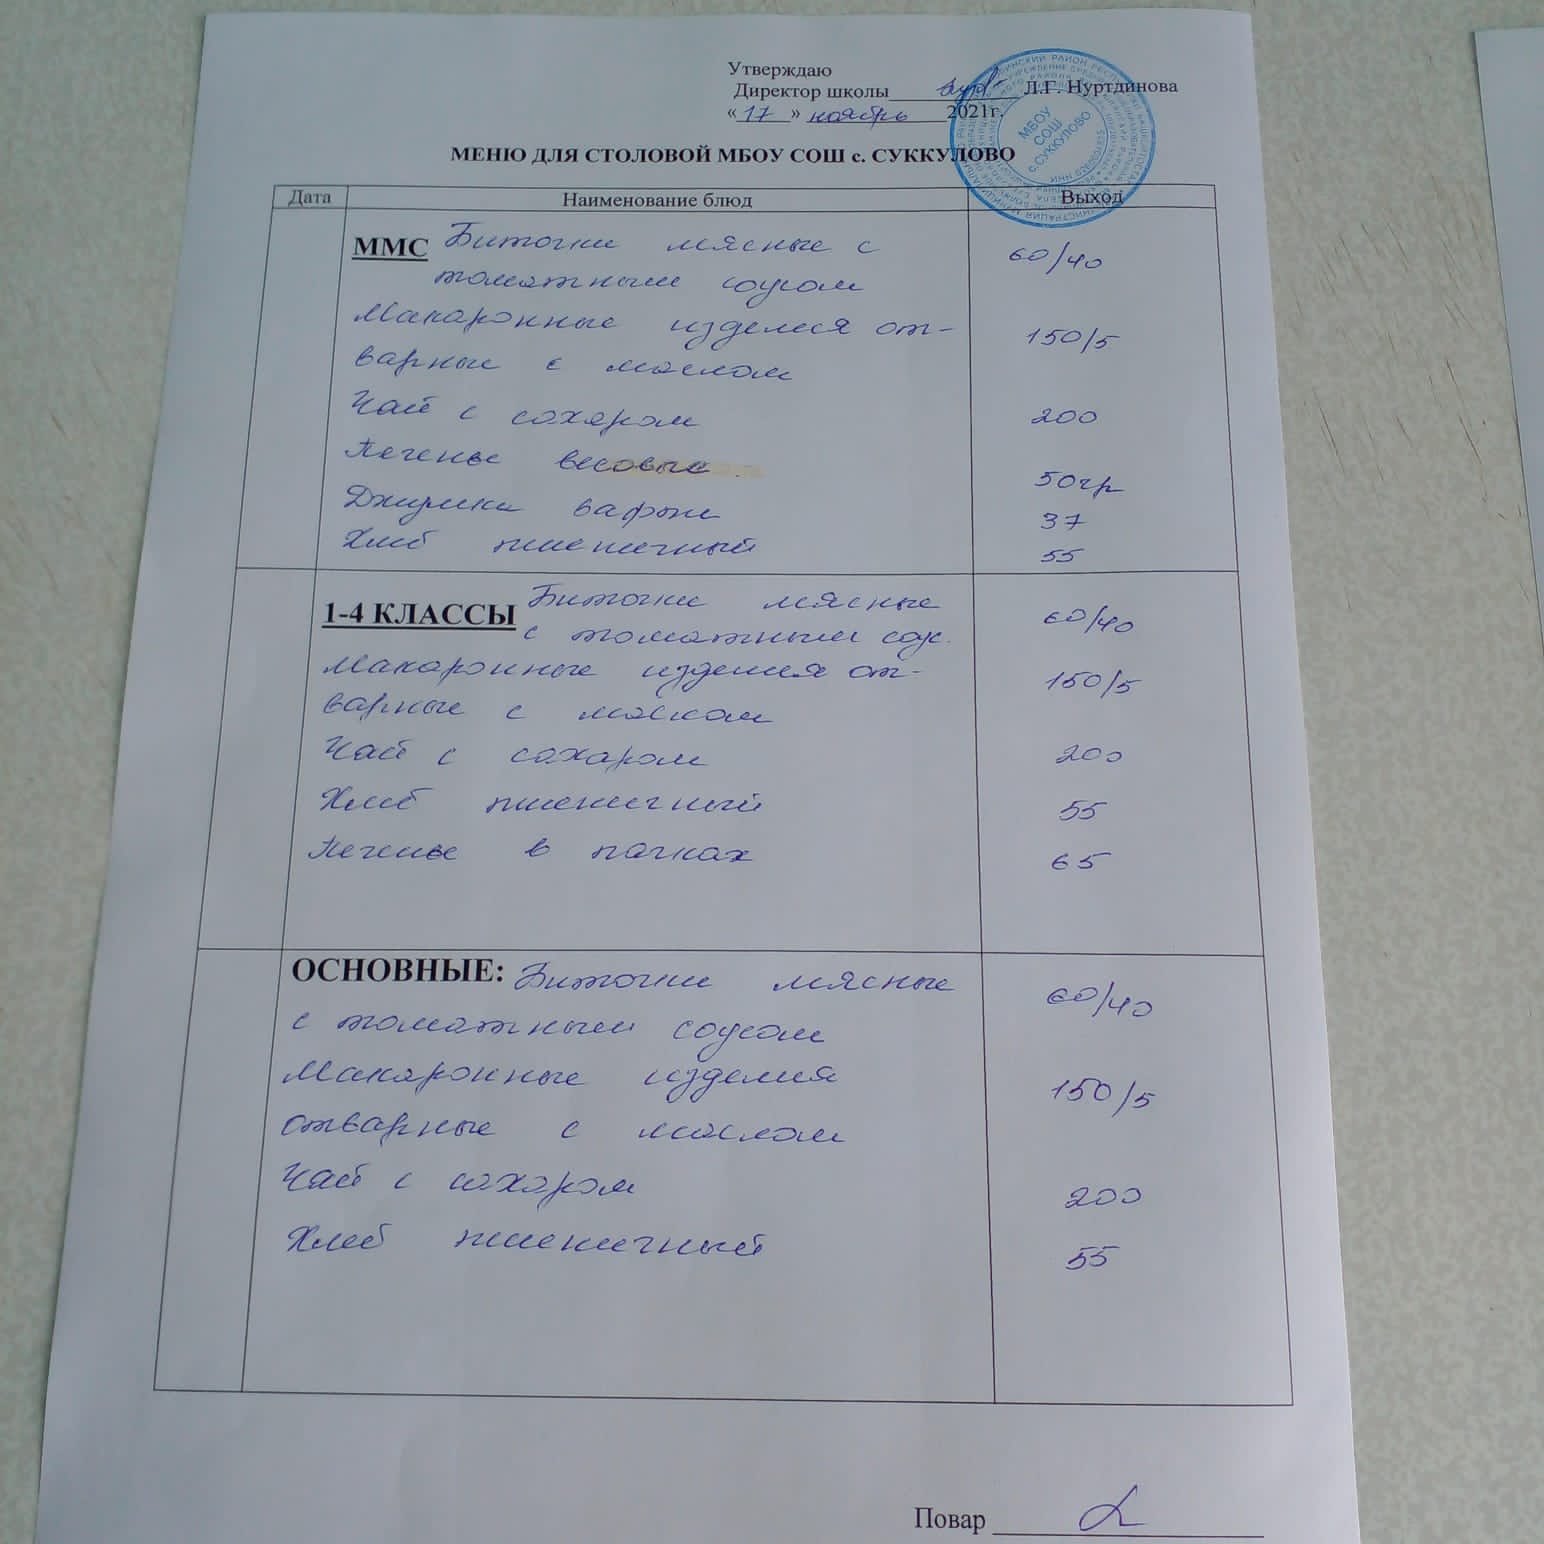 Утверждаю
Директор школы Л.Г. Нуртдинова
«17» ноябрь 2021г.
МБОУ
СОШ
с.СУККУЛОВО
МЕНЮ ДЛЯ СТОЛОВОЙ МБОУ СОШ с. СУККУЛОВО
Дата Наименование блюд Выход
ММС Биточки мясные с 60/40
томатным соусом
Макаронные изделия от- 150/5
варные с маслом
Чай с сахаром 200
Печенье весовые 50гр
37
Хлеб пшеничный 55
1-4 КЛАССЫ Биточки мясные 60/40
с томатным соус.
Макаронные изделия от- 150/5
варные с маслом
Чай с сахаром 200
Хлеб пшеничный 55
Печенье в пачках 65
ОСНОВНЫЕ: Биточки мясные 60/40
с томатным соусом
Макаронные изделия 150/5
отварные с маслом
Чай с сахаром 200
Хлеб пшеничный 55
Повар